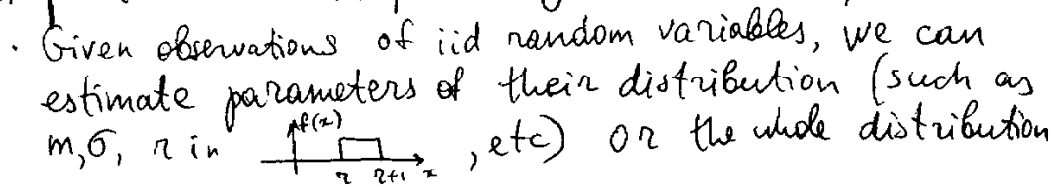 · Given observations of iid random variables, we can
estimate parameters of their distribution (such as
m, σ, r in f(x) r r+1 x , etc) or the whole distribution